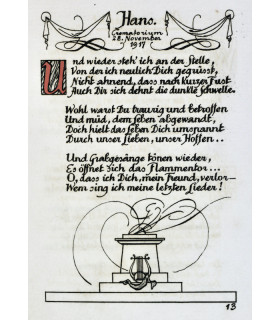 Hans.
Crematorium
28. November
1917
Und wieder steh' ich an der Stelle,
Von der ich neulich Dich gegrüsst,
Nicht ahnend, dass nach kurzer Frist
Auch Dir sich dehnt die dunkle Schwelle.
Wohl warst Du traurig und betroffen
Und müd, dem Leben abgewandt,
Doch hielt das Leben Dich umspannt
Durch unser Lieben, unser Hoffen...
Und Grabgesänge tönen wieder,
Es öffnet sich das Flammentor...
O, dass ich Dich, mein Freund, verlor—
Wem sing ich meine letzten Lieder!
13